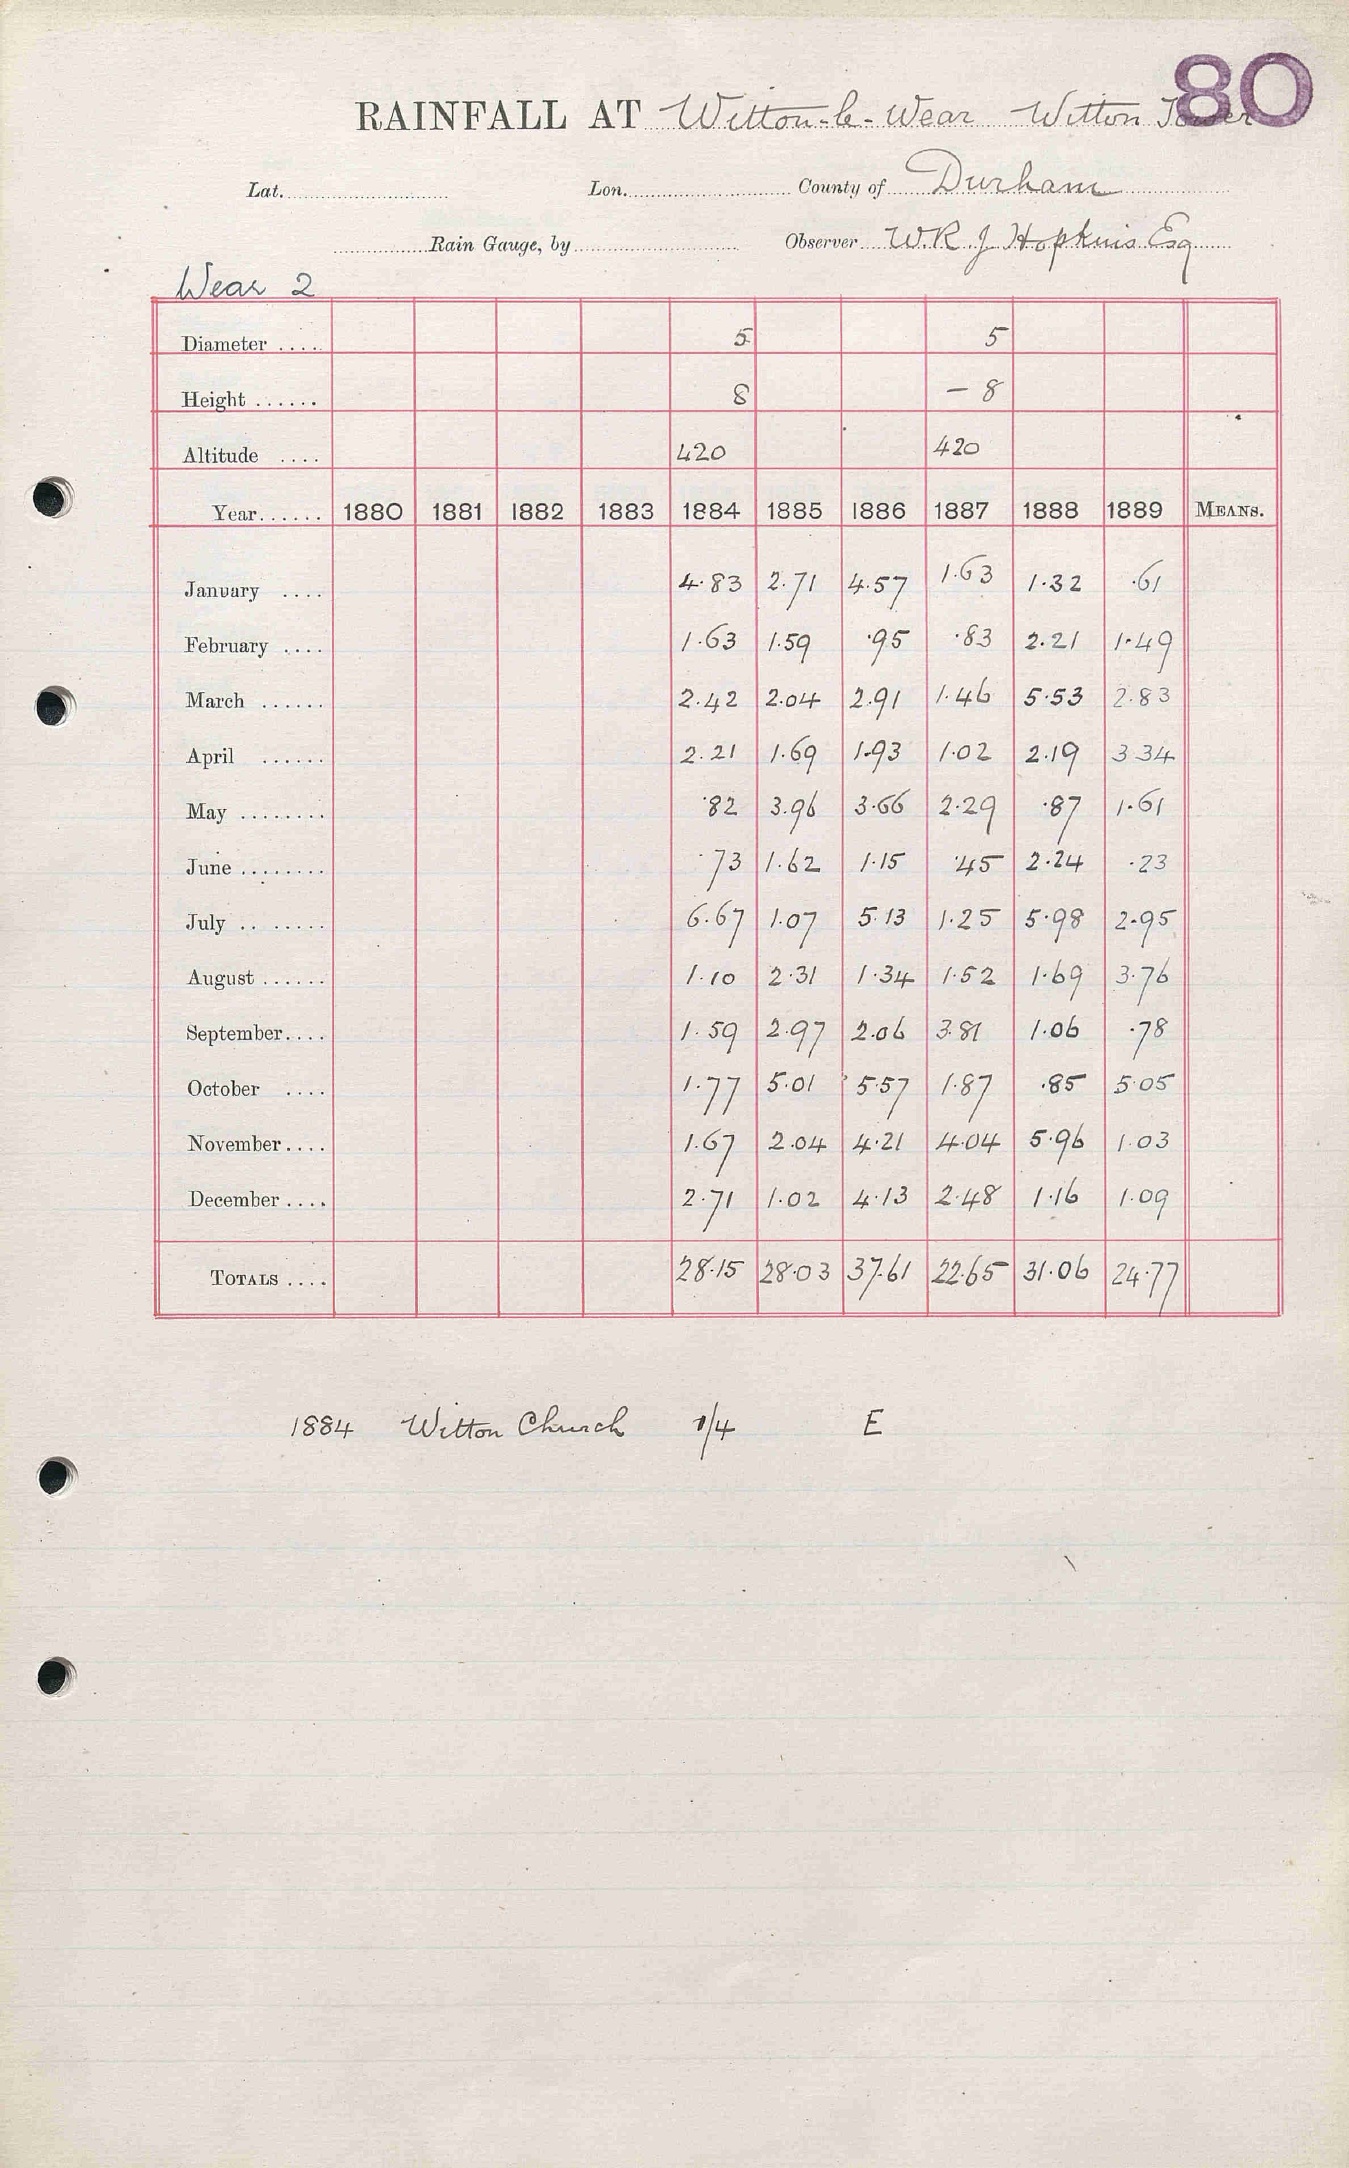 80
RAINFALL AT Witton-le-Wear Witton Tower
Lat. Lon. County of Durham
Rain Gauge, by Observer W.R.J Hopkins Esq
Wear 2
Diameter .... 5 5
Height ...... 8 – 8
Altitude .... 420 420
Year...... 1880 1881 1882 1883 1884 1885 1886 1887 1888 1889 MEANS.
January .... 4.83 2.71 4.57 1.63 1.32 .61
February .... 1.63 1.59 .95 .83 2.21 1.49
March ...... 2.42 2.04 2.91 1.46 5.53 2.83
April ...... 2.21 1.69 1.93 1.02 2.19 3.34
May ........ .82 3.96 3.66 2.29 .87 1.61
June ........ .73 1.62 1.15 .45 2.24 .23
July .. ..... 6.67 1.07 5.13 1.25 5.98 2.95
August ...... 1.10 2.31 1.34 1.52 1.69 3.76
September.... 1.59 2.97 2.06 3.81 1.06 .78
October .... 1.77 5.01 5.57 1.87 .85 5.05
November.... 1.67 2.04 4.21 4.04 5.96 1.03
December .... 2.71 1.02 4.13 2.48 1.16 1.09
TOTALS .... 28.15 28.03 37.61 22.65 31.06 24.77
1884 Witton Church 1/4 E